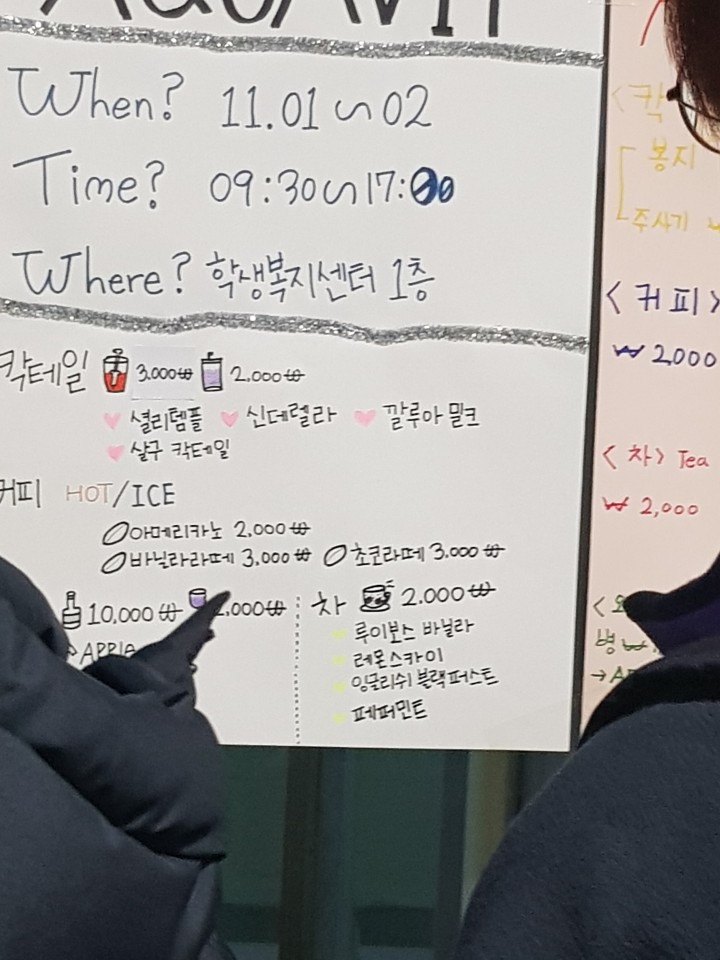 AQUAVIT
When? 11.01 ~ 02
Time? 09:30~17:00
Where? 학생복지센터 1층
칵테일 3.000₩ 2.000₩
셜리템플 신데렐라 깔루아 밀크
살구 칵테일
커피 HOT/ICE
아메리카노 2.000₩
바닐라라떼 3.000₩ 초코라떼 3.000₩
10,000₩ 2.000₩
차 2.000₩
루이보스 바닐라
레몬스카이
잉글리쉬 블랙퍼스트
페퍼민트
<칵
봉지
주사기
<커피>
₩2,000
<차> Tea
₩2,000
병 ₩